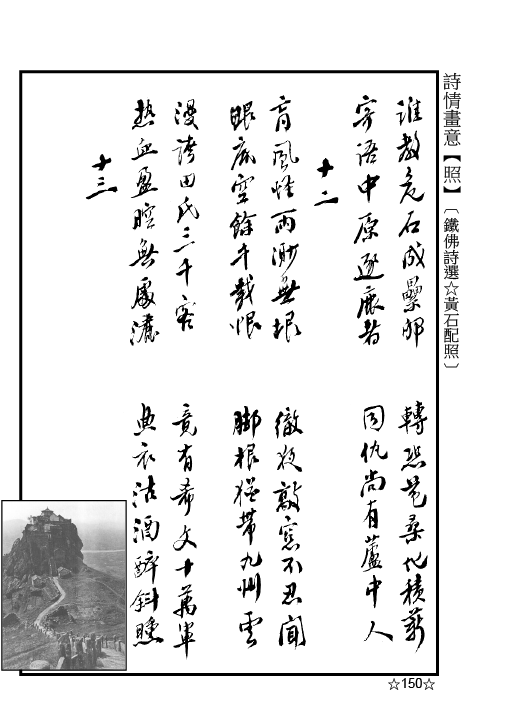 詩情畫意【照】〔鐵佛詩選☆黃石配照〕
誰教危石成卵 轉恐苞桑化積薪
寄語中原逐鹿者 同仇尚有蘆中人
十二
盲風怪雨渺無垠 徹夜敲窓不忍聞
眼底空餘千載恨 腳根猶帶九州雲
漫誇田氏三千客 竟有希文十萬軍
熱血盈腔無處灑 典衣沽酒醉斜曛
十三
☆150☆